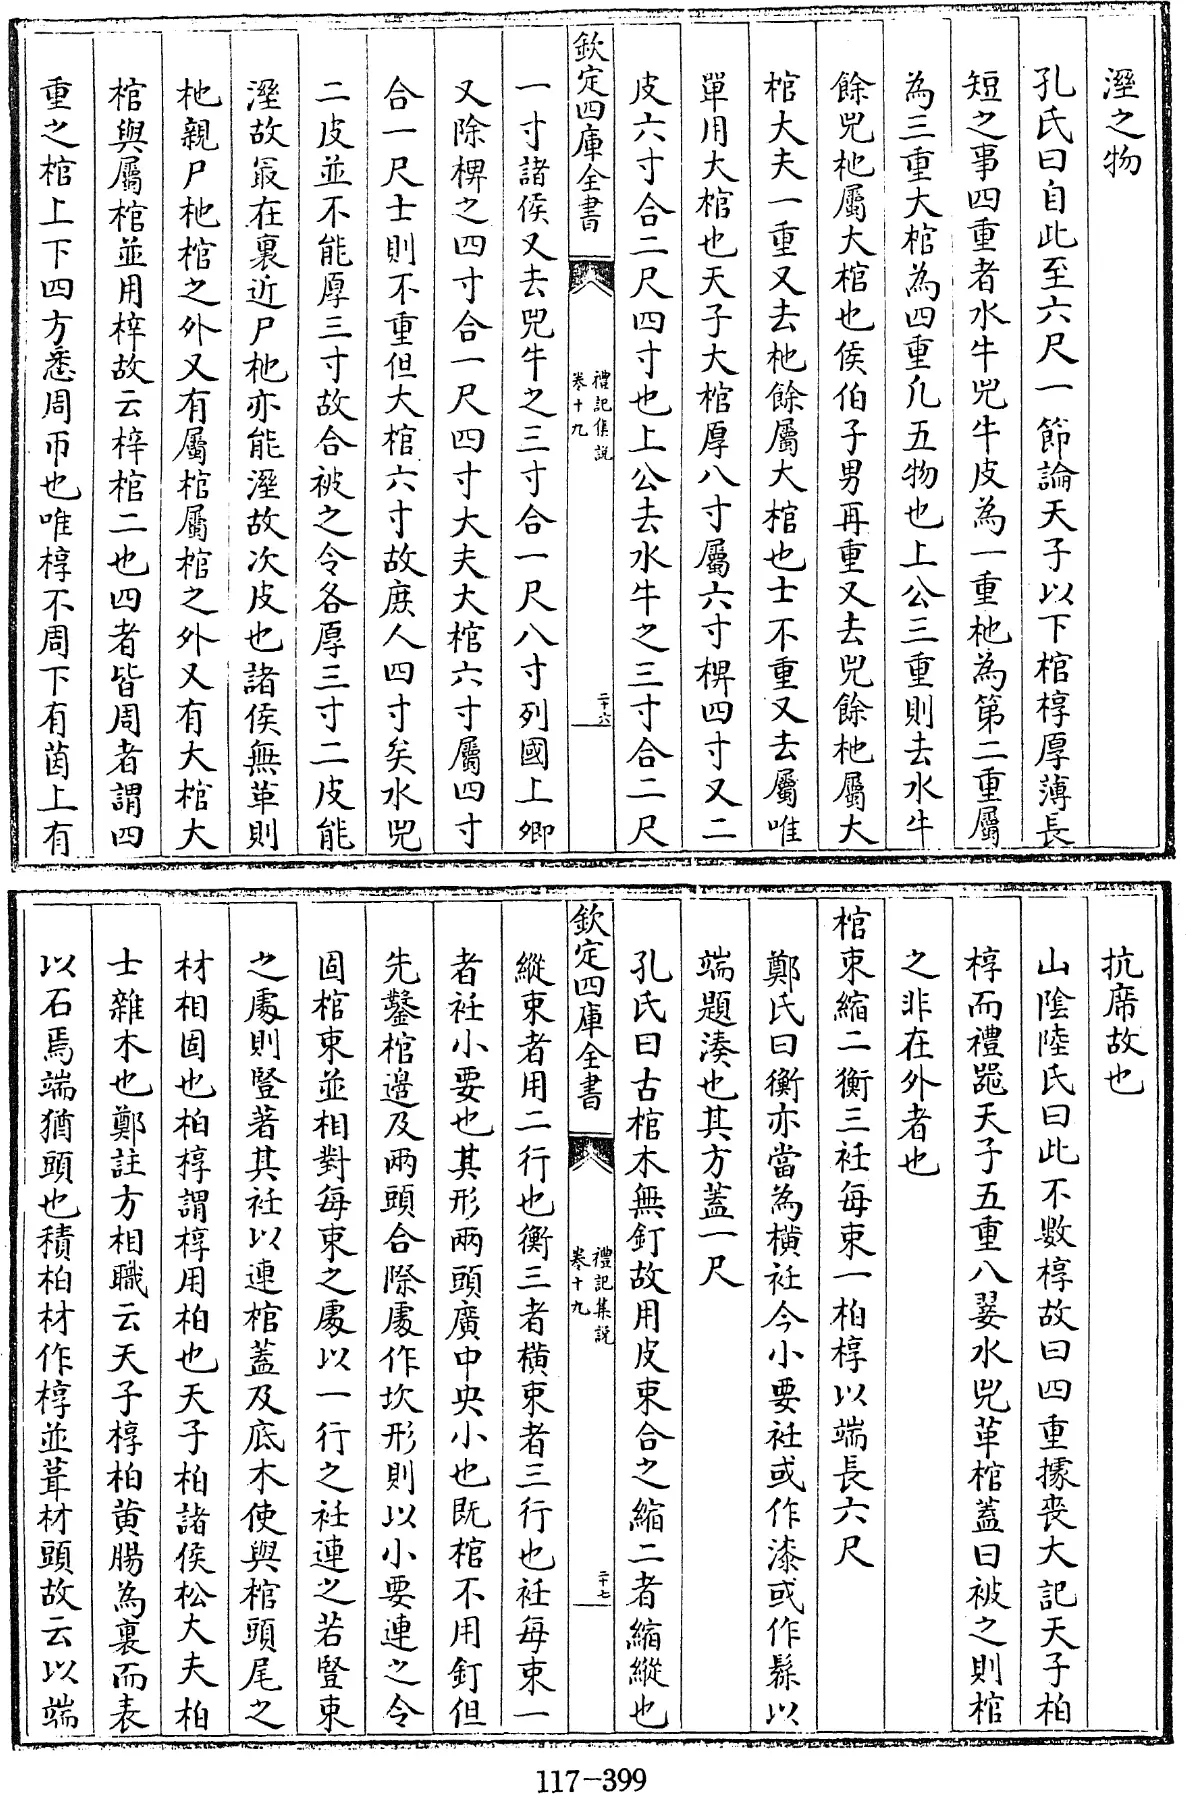 溼之物
孔氏曰自此至六尺一節論天子以下棺椁厚薄長
短之事四重者水牛兕牛皮為一重杝為第二重屬
為三重大棺為四重凡五物也上公三重則去水牛
餘兕杝屬大棺也侯伯子男再重又去兕餘杝屬大
棺大夫一重又去杝餘屬大棺也士不重又去屬唯
單用大棺也天子大棺厚八寸屬六寸椑四寸又二
皮六寸合二尺四寸也上公去水牛之三寸合二尺
欽定四庫全書
禮記集說
卷十九
二十六
一寸諸侯又去兕牛之三寸合一尺八寸列國上卿
又除椑之四寸合一尺四寸大夫大棺六寸屬四寸
合一尺士則不重但大棺六寸故庶人四寸矣水兕
二皮並不能厚三寸故合被之令各厚三寸二皮能
溼故㝡在裏近尸杝亦能溼故次皮也諸侯無革則
杝親尸杝棺之外又有屬棺屬棺之外又有大棺大
棺與屬棺並用梓故云梓棺二也四者皆周者謂四
重之棺上下四方悉周帀也唯椁不周下有茵上有
抗席故也
山陰陸氏曰此不數椁故曰四重據喪大記天子柏
椁而禮器天子五重八翣水兕革棺蓋曰被之則棺
之非在外者也
棺束縮二衡三衽每束一柏椁以端長六尺
鄭氏曰衡亦當為橫衽今小要衽或作漆或作髹以
端題湊也其方蓋一尺
孔氏曰古棺木無釘故用皮束合之縮二者縮縱也
欽定四庫全書
禮記集說
卷十九
二十七
縱束者用二行也衡三者橫束者三行也衽每束一
者衽小要也其形兩頭廣中央小也既棺不用釘但
先鑿棺邊及兩頭合際處作坎形則以小要連之令
固棺束並相對每束之處以一行之衽連之若豎束
之處則豎著其衽以連棺蓋及底木使與棺頭尾之
材相固也柏椁謂椁用柏也天子柏諸侯松大夫柏
士雜木也鄭註方相職云天子椁柏黃腸為裏而表
以石焉端猶頭也積柏材作椁並葺材頭故云以端
117-399